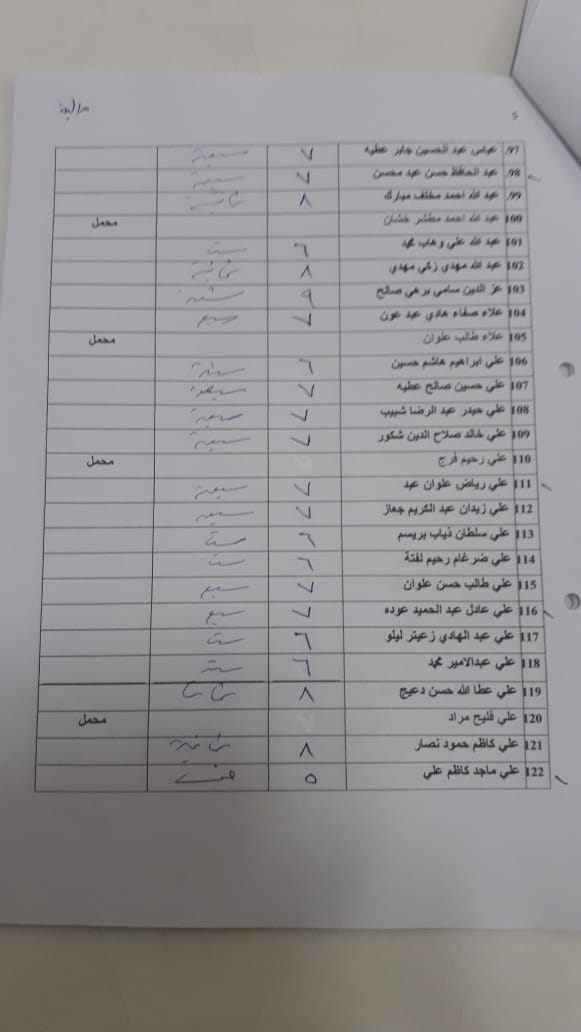 مالية
٩
97. عباس عبد الحسين جابر عطيه ٧ سبعة
98. عبد الحافظ حسن عبد محسن ٧ سبعة
99. عبد الله احمد مخلف مبارك ٨ ثمانية
100 عبد الله احمد مطشر خشان محمل
101 عبد الله علي وهاب محمد ٦ ست
102 عبد الله مهدي زكي مهدي ٨ ثمانية
103 عز الدين سامي برهي صالح ٩ تسعة
104 علاء صفاء هادي عبد عون ٧ سبع
105 علاء طالب علوان محمل
106 علي ابراهيم هاشم حسين ٦ ستة
107 علي حسين صالح عطيه ٧ سبعة
108 علي حيدر عبد الرضا شبيب ٧ سبعة
109 علي خالد صلاح الدين شكور ٧ سبعة
110 علي رحيم فرج محمل
111 علي رياض علوان عبد ٧ سبعة
112 علي زيدان عبد الكريم جعاز ٧ سبعة
113 علي سلطان ذياب بريسم ٦ ست
114 علي ضرغام رحيم لفتة ٦ ست
115 علي طالب حسن علوان ٧ سبع
116 علي عادل عبد الحميد عوده ٧ سبع
117 علي عبد الهادي زعيتر ليلو ٦ ست
118 علي عبدالامير محمد ٦ ستة
119 علي عطا الله حسن دعيج ٨ ثمان
120 علي فليح مراد محمل
121 علي كاظم حمود نصار ٨ ثمانية
122 علي ماجد كاظم علي ٥ خمس